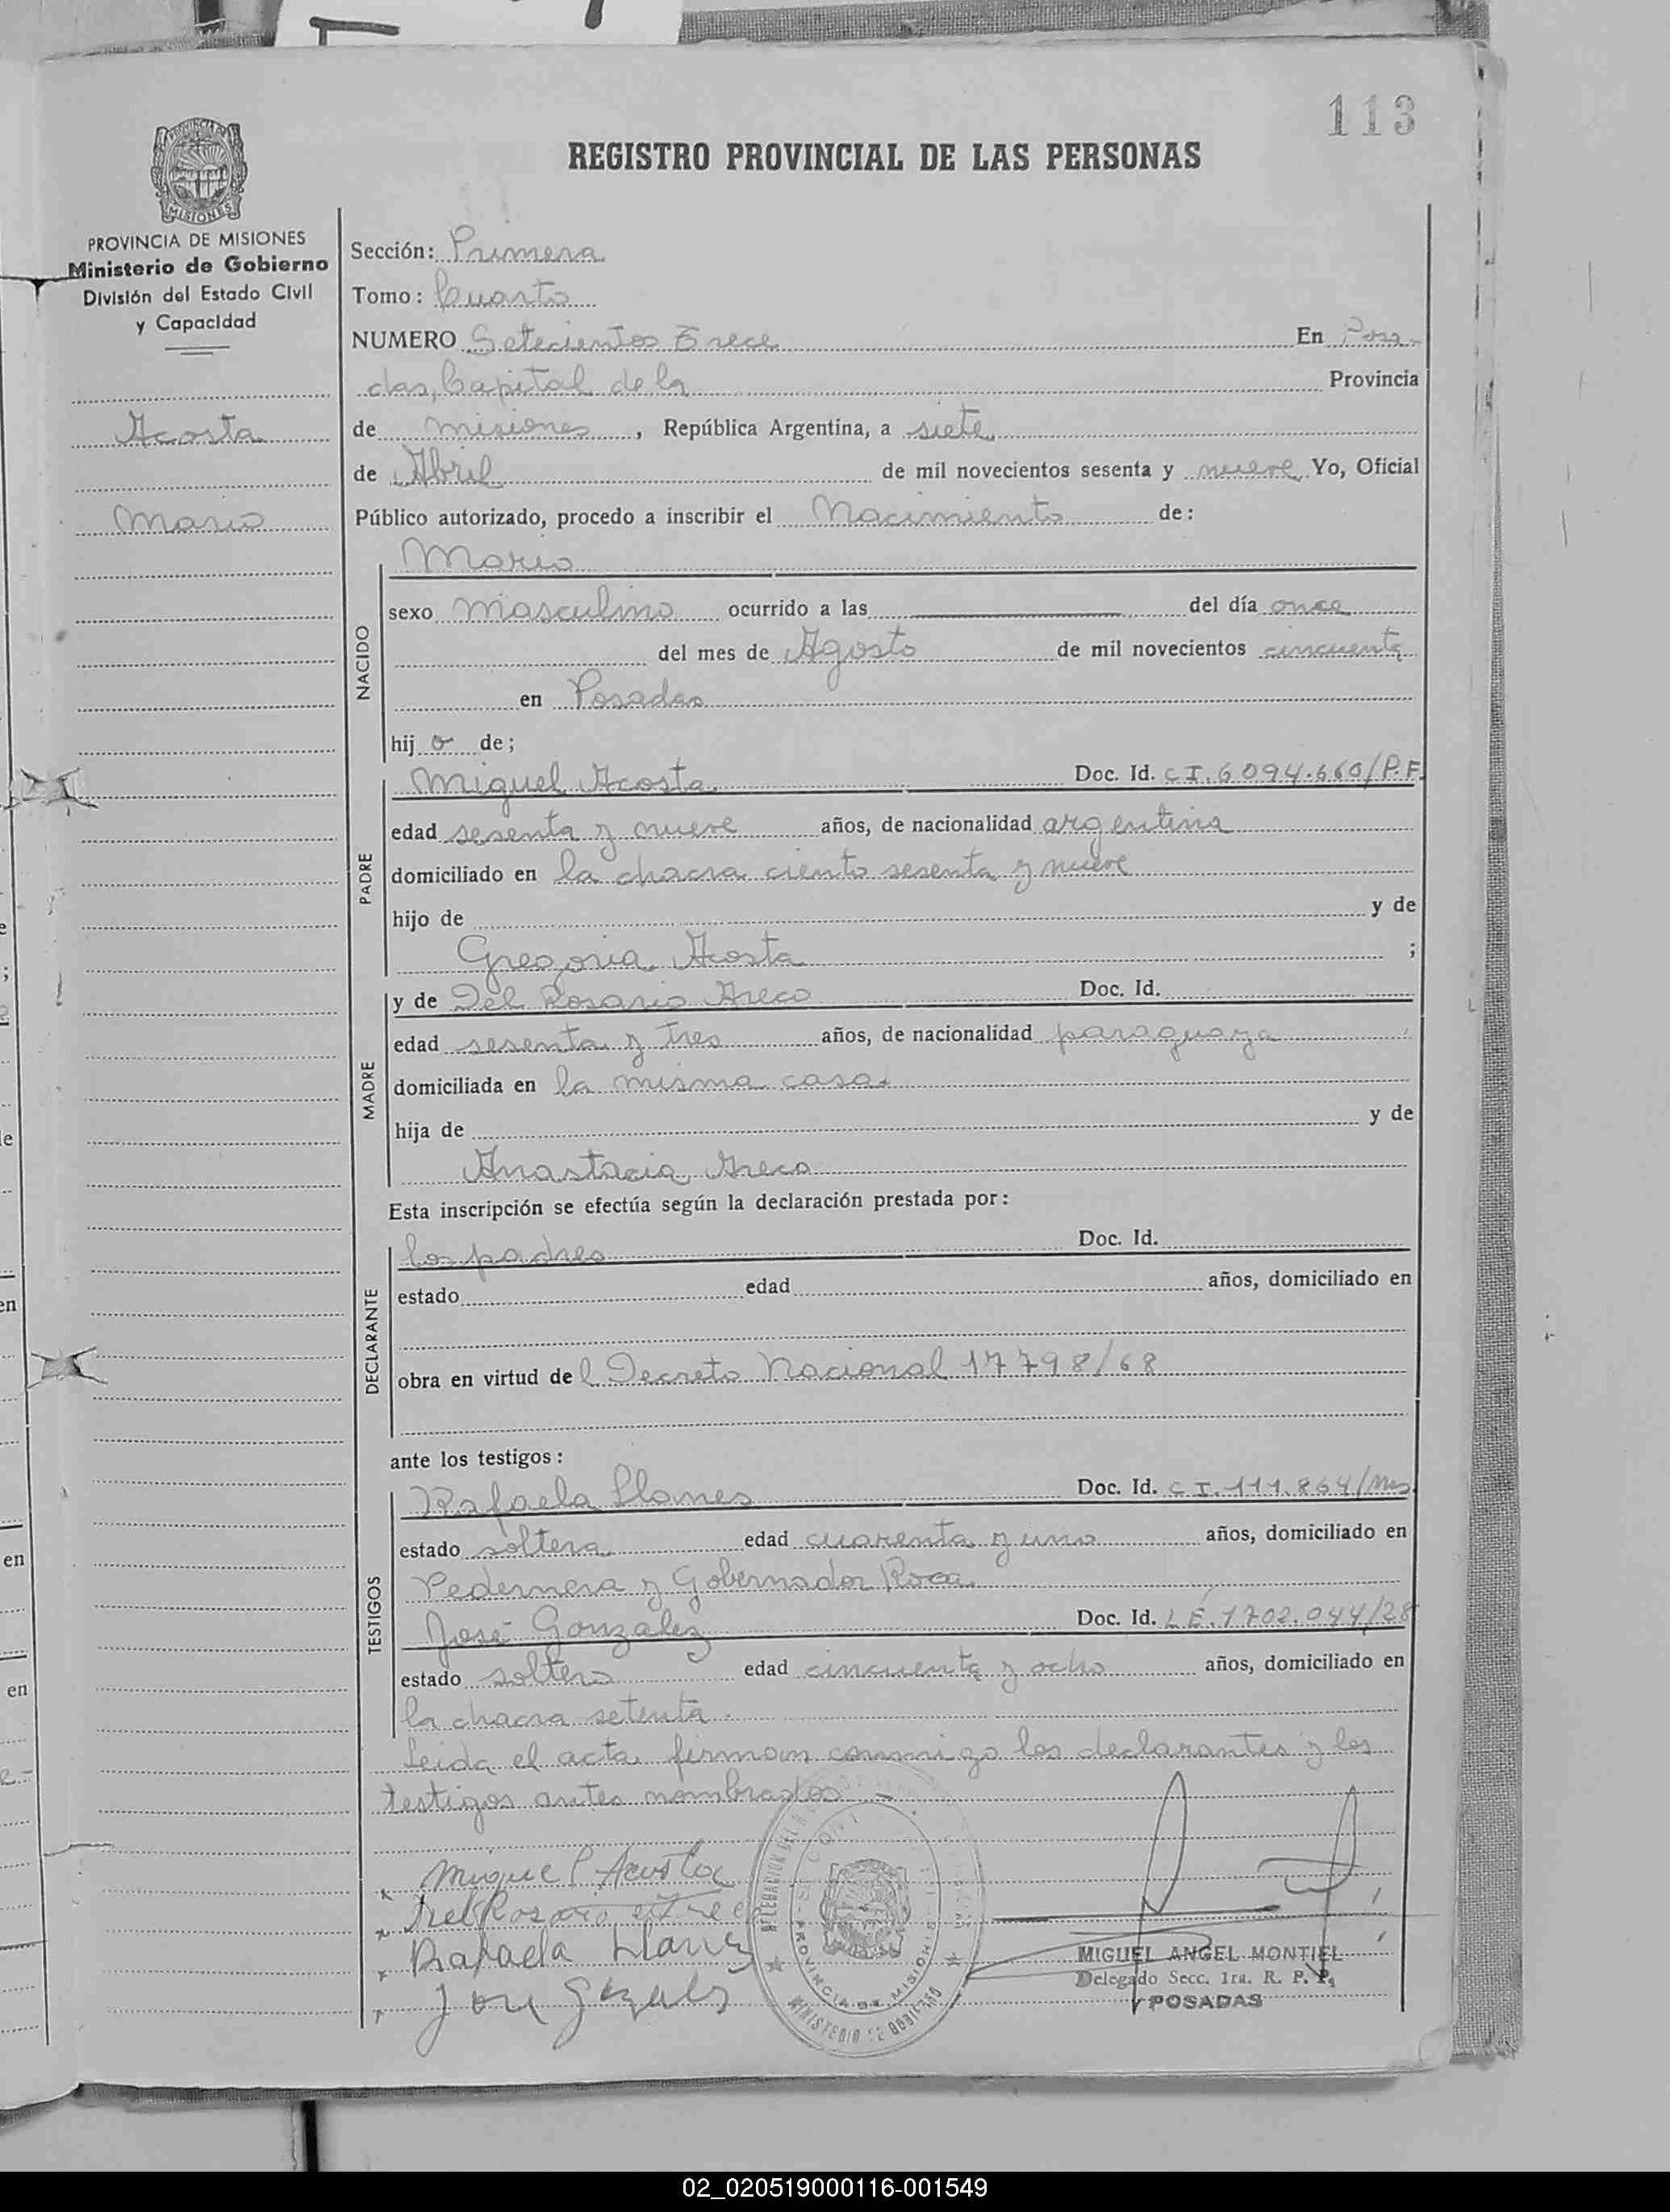 113
REGISTRO PROVINCIAL DE LAS PERSONAS
PROVINCIA DE MISIONES
Ministerio de Gobierno
División del Estado Civil
y Capacidad
Acosta
Mario
Sección: Primera
Tomo: Cuarto
NUMERO Setecientos Trece En Posa-
das, Capital de la Provincia
de misiones, República Argentina, a siete
de Abril de mil novecientos sesenta y nueve Yo, Oficial
Público autorizado, procedo a inscribir el Nacimiento de:
NACIDO
Mario
sexo masculino ocurrido a las del día once
del mes de Agosto de mil novecientos cincuenta
en Posadas
hijo de;
PADRE
Miguel Acosta Doc. Id. C I. 6094.660/P.F.
edad sesenta y nueve años, de nacionalidad argentina
domiciliado en la chacra ciento sesenta y nueve
hijo de y de
Gregoria Acosta ;
MADRE
y de Del Rosario Areco Doc. Id.
edad sesenta y tres años, de nacionalidad paraguaya
domiciliada en la misma casa.
hija de y de
Anastacia Areco
Esta inscripción se efectúa según la declaración prestada por:
DECLARANTE
los padres Doc. Id.
estado edad años, domiciliado en
obra en virtud del Decreto Nacional 17798/68
ante los testigos:
TESTIGOS
Rafaela Llanes Doc. Id. C I. 111.864/Ms
estado soltera edad cuarenta y uno años, domiciliado en
Pedernera y Gobernador Roca.
José González Doc. Id. L E. 1702.044/28
estado soltero edad cincuenta y ocho años, domiciliado en
la chacra setenta.
Leida el acta firman conmigo los declarantes y los
testigos antes nombrados.-
Miguel Acosta
Del Rosario Areco
Rafaela Llanes
MINISTERIO DE GOBIERNO
PROVINCIA DE MISIONES
MIGUEL ANGEL MONTIEL
Delegado Secc. 1ra. R. P. P.
POSADAS
02_020519000116-001549